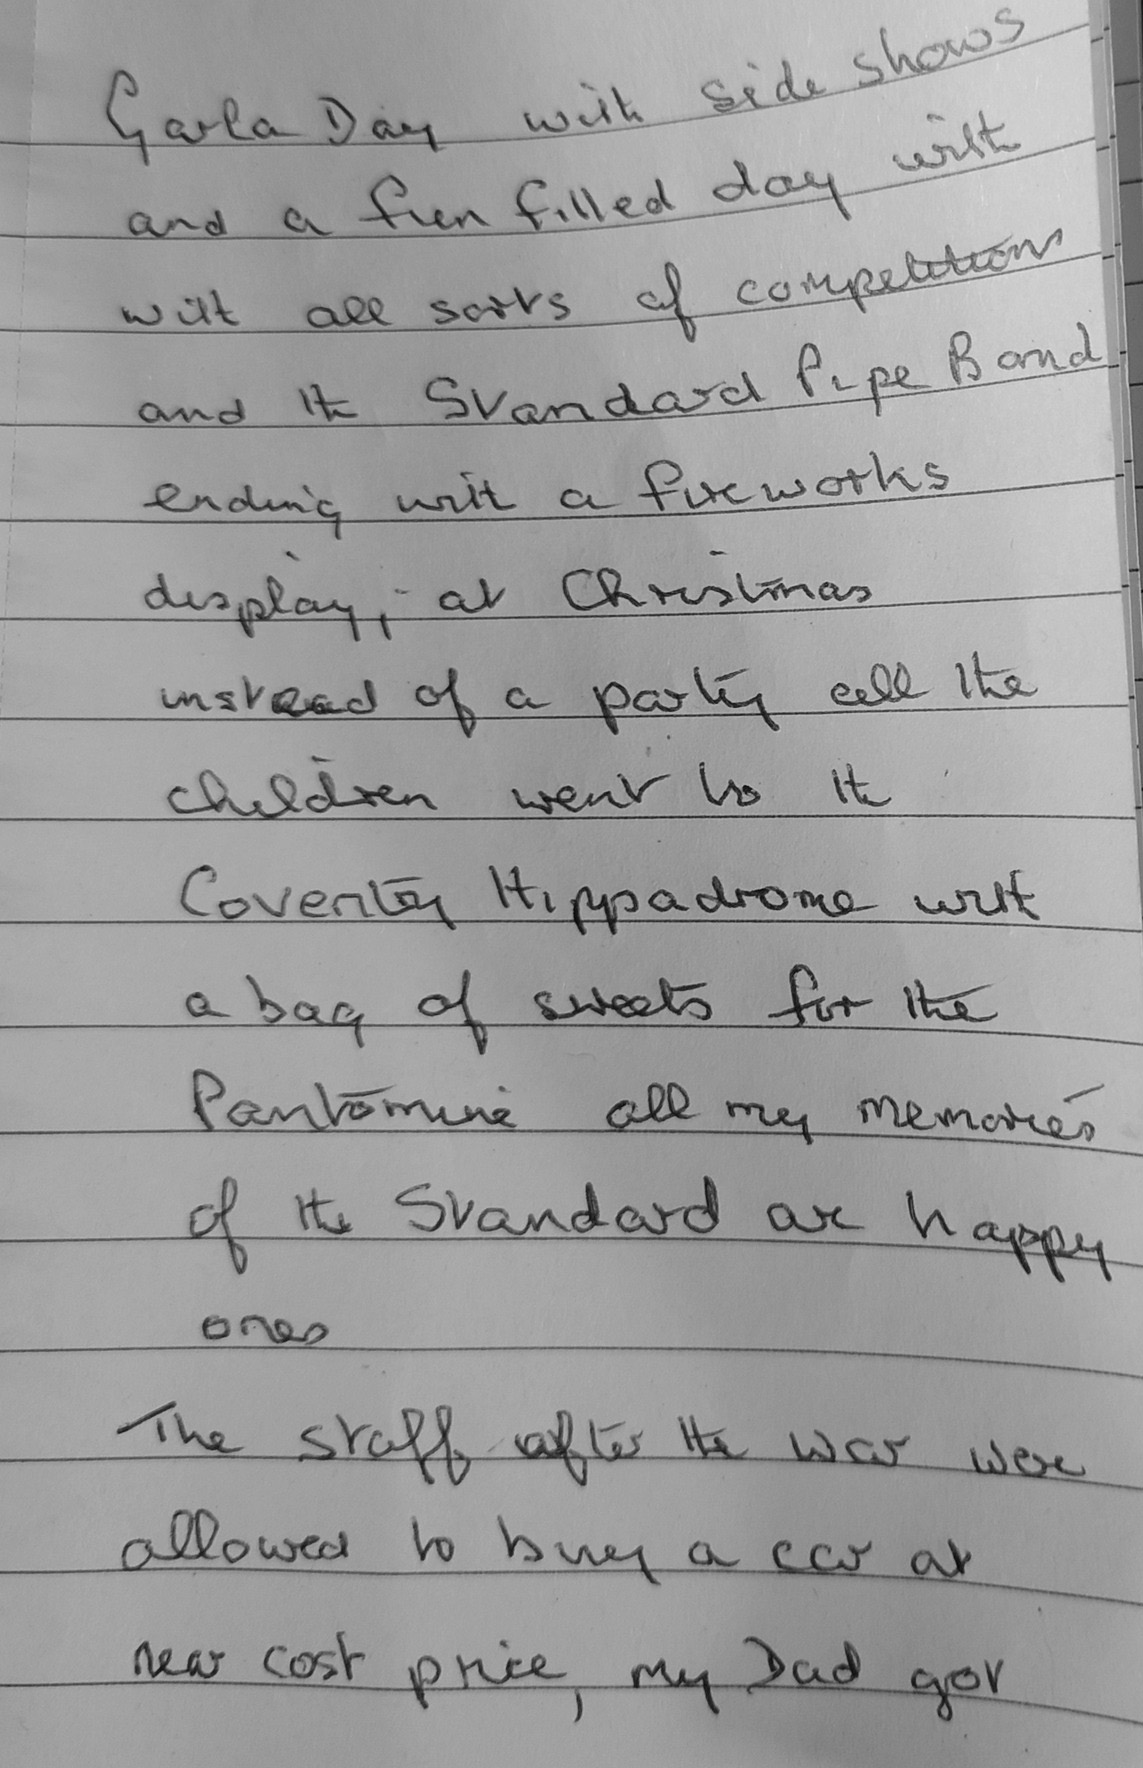 Garla Day with side shows
and a fun filled day with
with all sorts of competitions
and the Standard Pipe Band
ending with a fireworks
display, at Christmas
instead of a party all the
children went to the
Coventry Hippadrome with
a bag of sweets for the
Pantomine all my memories
of the Standard are happy
ones
The staff after the war were
allowed to buy a car at
near cost price, my Dad got